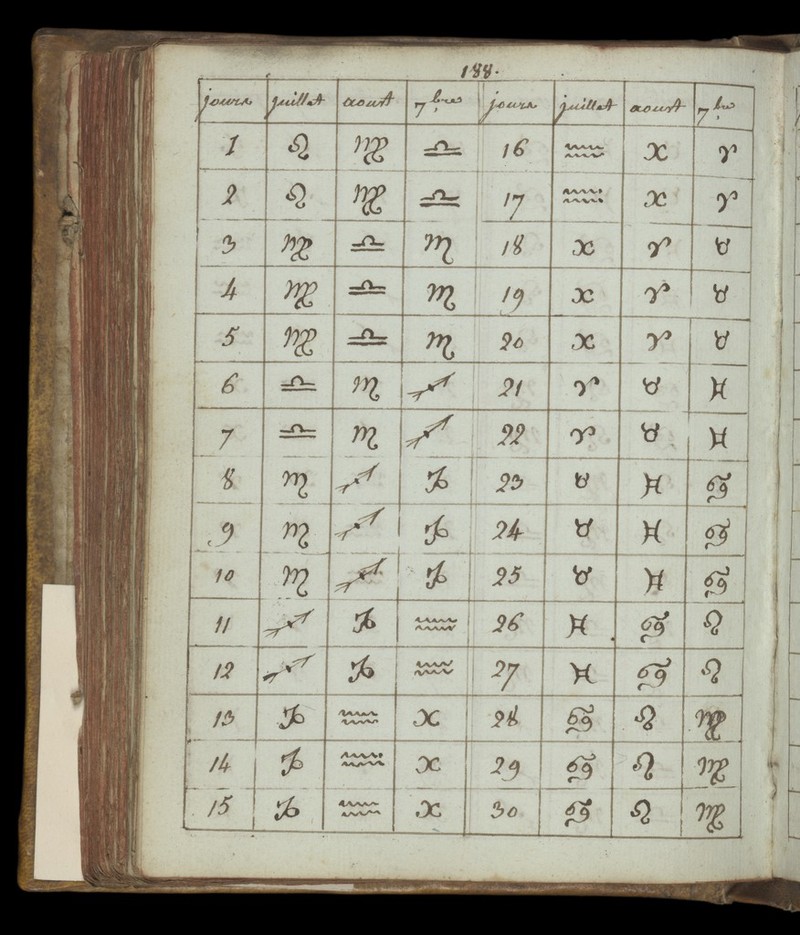 188.
jours juillet aoust 7bre jours juillet aoust 7bre
1 ♌ ♍ ♎ 16 ♒ ♓ ♈
2 ♌ ♍ ♎ 17 ♒ ♓ ♈
3 ♍ ♎ ♏ 18 ♓ ♈ ♉
4 ♍ ♎ ♏ 19 ♓ ♈ ♉
5 ♍ ♎ ♏ 20 ♓ ♈ ♉
6 ♎ ♏ ♐ 21 ♈ ♉ ♊
7 ♎ ♏ ♐ 22 ♈ ♉ ♊
8 ♏ ♐ ♑ 23 ♉ ♊ ♋
9 ♏ ♐ ♑ 24 ♉ ♊ ♋
10 ♏ ♐ ♑ 25 ♉ ♊ ♋
11 ♐ ♑ ♒ 26 ♊ ♋ ♌
12 ♐ ♑ ♒ 27 ♊ ♋ ♌
13 ♑ ♒ ♓ 28 ♋ ♌ ♍
14 ♑ ♒ ♓ 29 ♋ ♌ ♍
15 ♑ ♒ ♓ 30 ♋ ♌ ♍